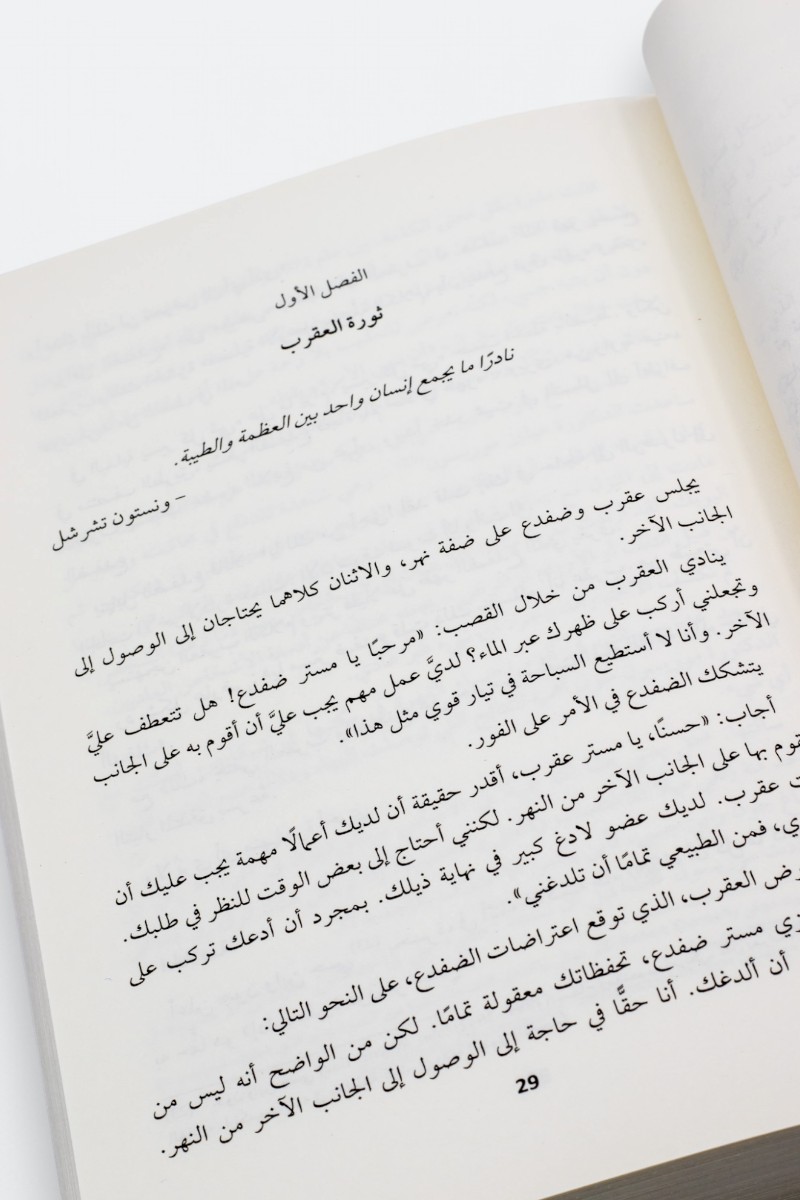 الفصل الأول
ثورة العقرب
نادرًا ما يجمع إنسان واحد بين العظمة والطيبة.
- ونستون تشرشل
يجلس عقرب وضفدع على ضفة نهر، والاثنان كلاهما يحتاجان إلى الوصول إلى
الجانب الآخر.
ينادي العقرب من خلال القصب: «مرحبًا يا مستر ضفدع! هل تتعطف عليَّ
وتجعلني أركب على ظهرك عبر الماء؟ لديَّ عمل مهم يجب عليَّ أن أقوم به على الجانب
الآخر. وأنا لا أستطيع السباحة في تيار قوي مثل هذا».
يتشكك الضفدع في الأمر على الفور.
أجاب: «حسنًا، يا مستر عقرب، أقدر حقيقة أن لديك أعمالًا مهمة يجب عليك أن
بها على الجانب الآخر من النهر. لكنني أحتاج إلى بعض الوقت للنظر في طلبك.
عقرب. لديك عضو لادغ كبير في نهاية ذيلك. بمجرد أن أدعك تركب على
فمن الطبيعي تمامًا أن تلدغني».
العقرب، الذي توقع اعتراضات الضفدع، على النحو التالي:
مستر ضفدع، تحفظاتك معقولة تمامًا. لكن من الواضح أنه ليس من
أن ألدغك. أنا حقًّا في حاجة إلى الوصول إلى الجانب الآخر من النهر.
29